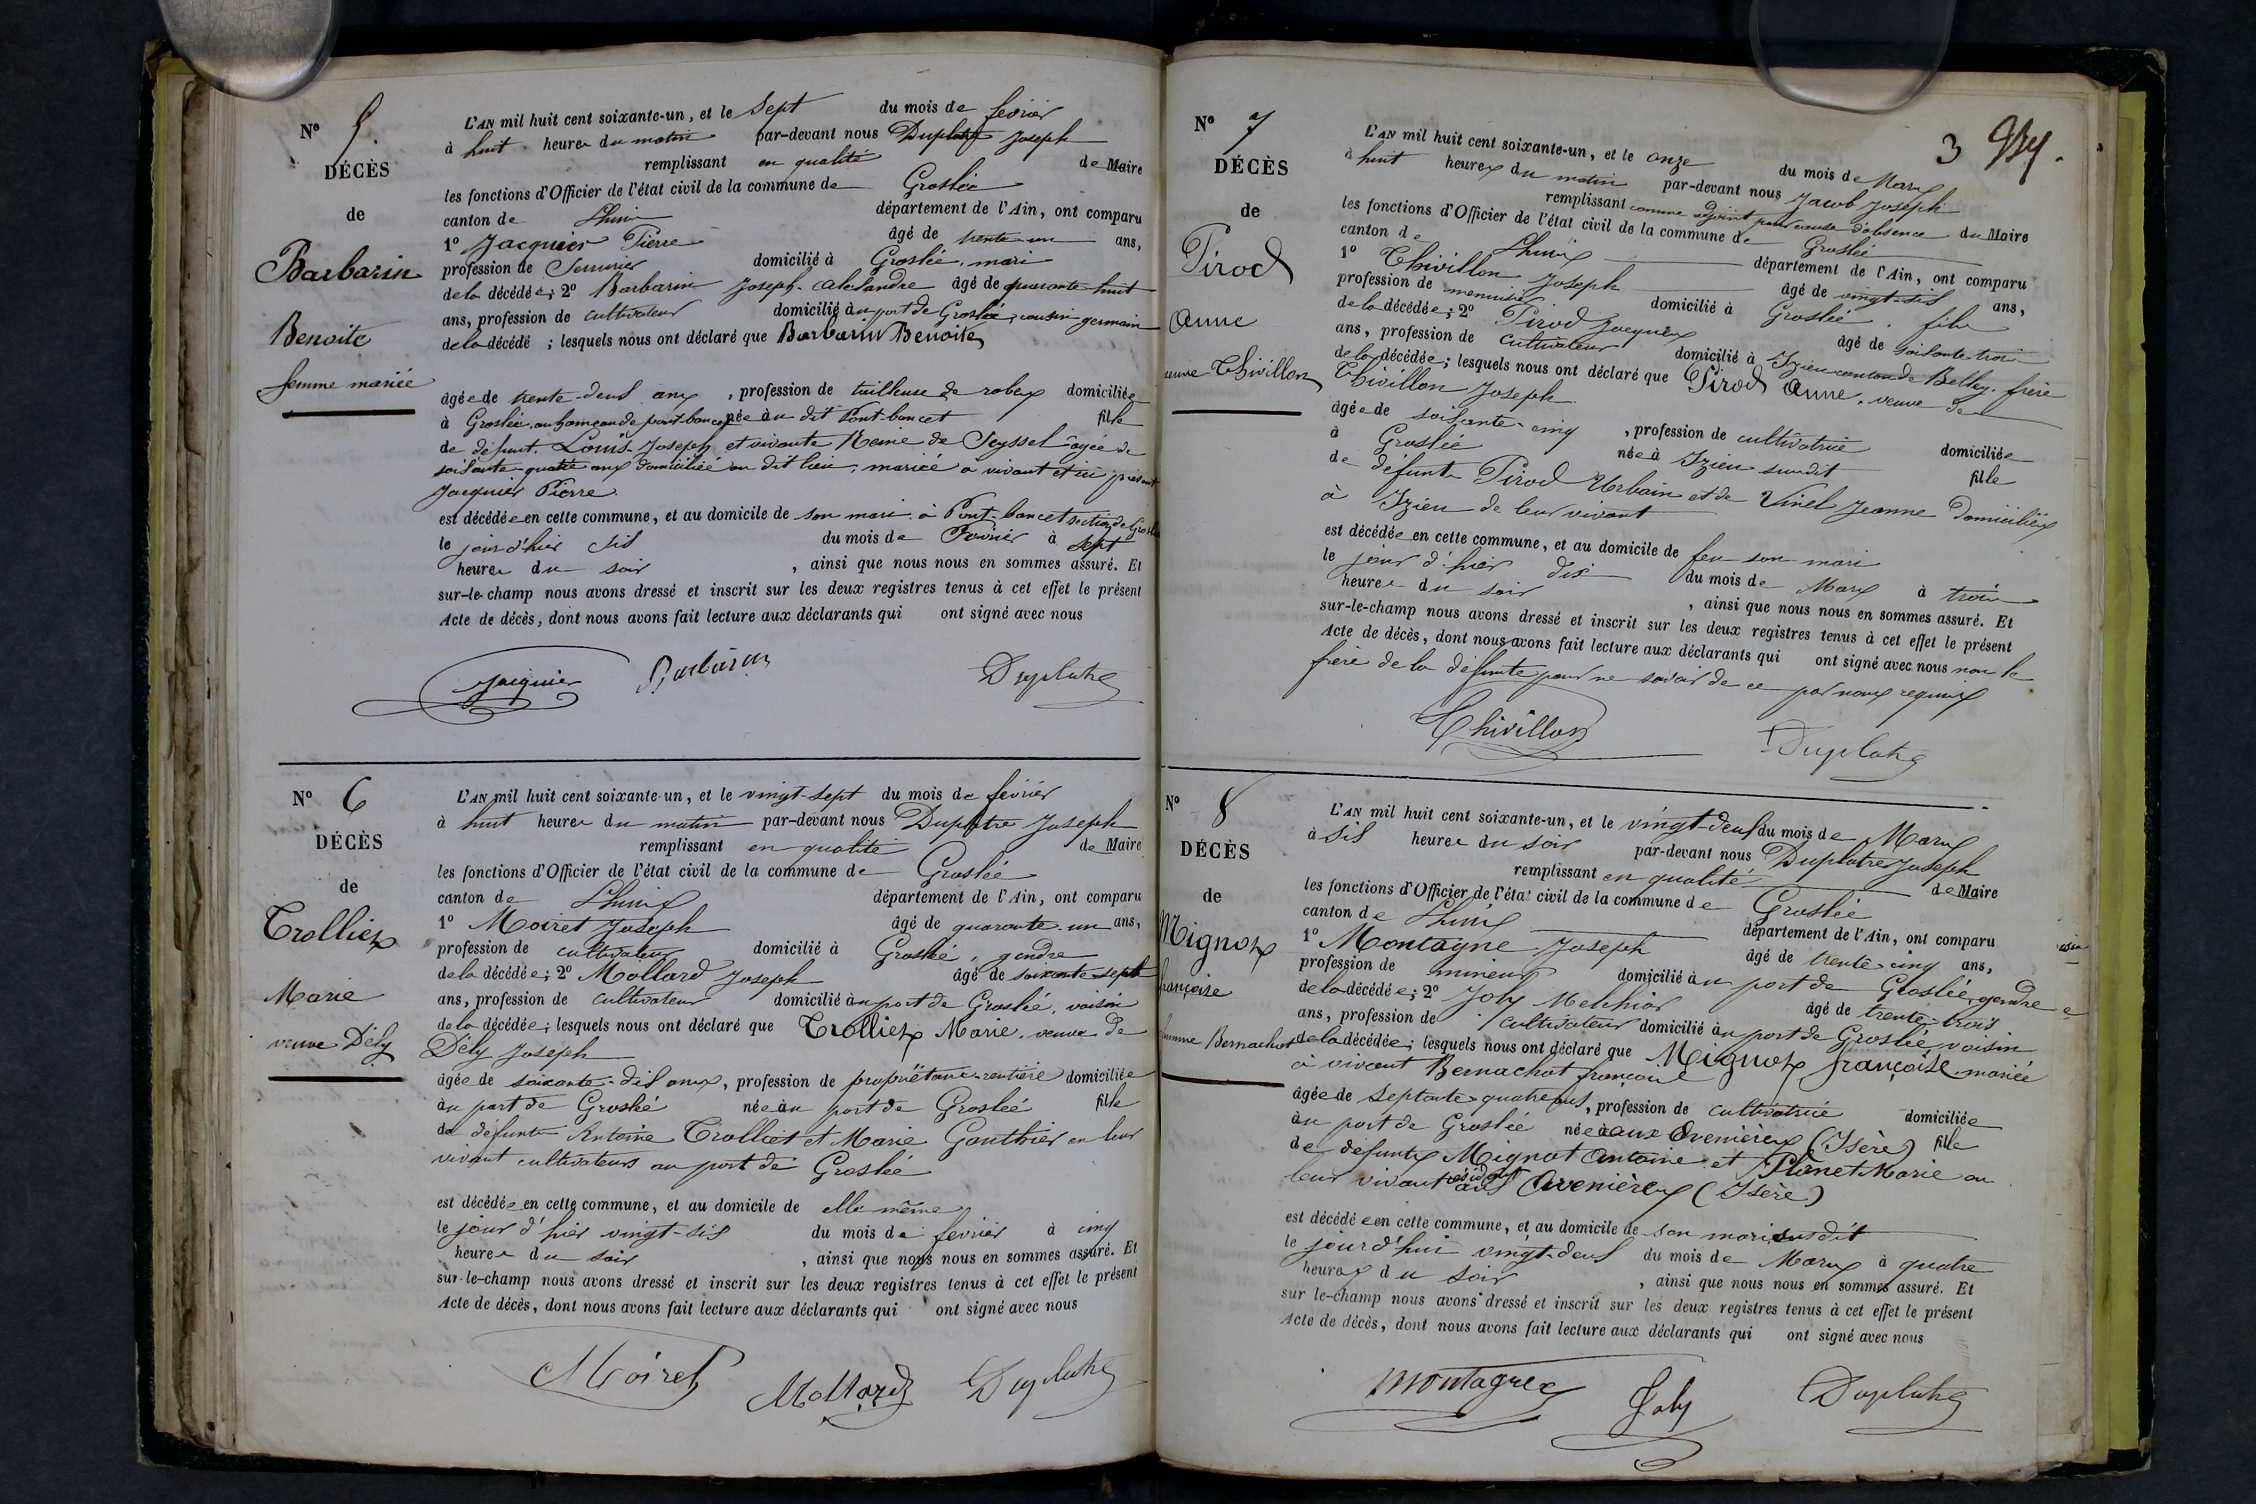 N° 5.
DÉCÈS
de
Barbarin
Benoite
femme mariée
L'AN mil huit cent soixante-un, et le Sept du mois de fevrier
à huit heures du matin par-devant nous Duplatre Joseph
remplissant en qualité de Maire
les fonctions d'Officier de l'état civil de la commune de Groslée
canton de Lhuis département de l'Ain, ont comparu
1° Jacquier Pierre âgé de trente-un ans,
profession de Serrurier domicilié à Groslée, mari
de la décédée; 2° Barbarin Joseph-Alexandre âgé de quarante-huit
ans, profession de cultivateur domicilié au port de Groslée, cousin germain
de la décédé ; lesquels nous ont déclaré que Barbarin Benoite
âgée de trente-deux ans, profession de tailleuse de robes domiciliée
à Groslée, au hameau de pont-bancet née au dit Pont-bancet fille
de défunt Louis-Joseph et vivante Reine de Seyssel âgée de
soixante-quatre ans domiciliée au dit lieu, mariée à vivant et ici présent
Jacquier Pierre
est décédée en cette commune, et au domicile de son mari à Pont-bancet section de Groslée
le jour d'hier six du mois de Fevrier à sept
heures du soir , ainsi que nous nous en sommes assuré. Et
sur-le-champ nous avons dressé et inscrit sur les deux registres tenus à cet effet le présent
Acte de décès, dont nous avons fait lecture aux déclarants qui ont signé avec nous
Jacquier Barbarin Duplatre
N° 6
DÉCÈS
de
Trolliet
Marie
veuve Dély
L'AN mil huit cent soixante-un, et le vingt-sept du mois de février
à huit heures du matin par-devant nous Duplatre Joseph
remplissant en qualité de Maire
les fonctions d'Officier de l'état civil de la commune de Groslée
canton de Lhuis département de l'Ain, ont comparu
1° Moiret Joseph âgé de quarante-un ans,
profession de cultivateur domicilié à Groslée, gendre
de la décédée; 2° Mollard Joseph âgé de soixante-sept
ans, profession de cultivateur domicilié au port de Groslée, voisin
de la décédée; lesquels nous ont déclaré que Trolliet Marie, veuve de
Dély Joseph
âgée de soixante-dix ans, profession de propriétaire-rentière domiciliée
au port de Groslée née au port de Groslée fille
de défunts Antoine Trolliet et Marie Gonthier en leur
vivant cultivateurs au port de Groslée
est décédée en cette commune, et au domicile de elle même
le jour d'hier vingt-six du mois de fevrier à cinq
heures du soir , ainsi que nous nous en sommes assuré. Et
sur-le-champ nous avons dressé et inscrit sur les deux registres tenus à cet effet le présent
Acte de décès, dont nous avons fait lecture aux déclarants qui ont signé avec nous
Moiret Mollard Duplatre
3
N° 7
DÉCÈS
de
Pirod
Anne
veuve Thivillon
L'AN mil huit cent soixante-un, et le onze du mois de Mars
à huit heures du matin par-devant nous Jacob Joseph
remplissant comme adjoint pour cause d'absence du Maire
les fonctions d'Officier de l'état civil de la commune de Groslée
canton de Lhuis département de l'Ain, ont comparu
1° Thivillon Joseph âgé de vingt-six ans,
profession de menuisier domicilié à Groslée, fils
de la décédée; 2° Pirod Jacques âgé de soixante-trois
ans, profession de cultivateur domicilié à Izieu canton de Belley, frère
de la décédée; lesquels nous ont déclaré que Pirod Anne, veuve de
Thivillon Joseph
âgée de soixante-cinq , profession de cultivatrice domiciliée
à Groslée née à Izieu susdit fille
de défunts Pirod Urbain et de Vinel Jeanne domiciliés
à Izieu de leur vivant
est décédée en cette commune, et au domicile de feu son mari
le jour d'hier dix du mois de Mars à trois
heures du soir , ainsi que nous nous en sommes assuré. Et
sur-le-champ nous avons dressé et inscrit sur les deux registres tenus à cet effet le présent
Acte de décès, dont nous avons fait lecture aux déclarants qui ont signé avec nous non le
frère de la défunte pour ne savoir de ce par nous requis
Thivillon Duplatre
N° 8
DÉCÈS
de
Mignot
françoise
femme Bernachot
L'AN mil huit cent soixante-un, et le vingt-deux du mois de Mars
à six heures du soir par-devant nous Duplatre Joseph
remplissant en qualité de Maire
les fonctions d'Officier de l'état civil de la commune de Groslée
canton de Lhuis département de l'Ain, ont comparu
1° Montagne Joseph âgé de trente cinq ans,
profession de mineur domicilié au port de Groslée, gendre
de la décédée; 2° Joly Melchior âgé de trente-trois
ans, profession de cultivateur domicilié au port de Groslée, voisin
de la décédée; lesquels nous ont déclaré que Mignot françoise mariée
à vivant Bernachot françois
âgée de septante-quatre ans, profession de cultivatrice domiciliée
au port de Groslée née aux Avenières (Isère) fille
de défunts Mignot Antoine et Planet Marie en
leur vivant résidant aux Avenières (Isère)
est décédée en cette commune, et au domicile de son mari susdit
le jour d'hui vingt-deux du mois de Mars à quatre
heures du soir , ainsi que nous nous en sommes assuré. Et
sur le-champ nous avons dressé et inscrit sur les deux registres tenus à cet effet le présent
Acte de décès, dont nous avons fait lecture aux déclarants qui ont signé avec nous
Montagne Joly Duplatre